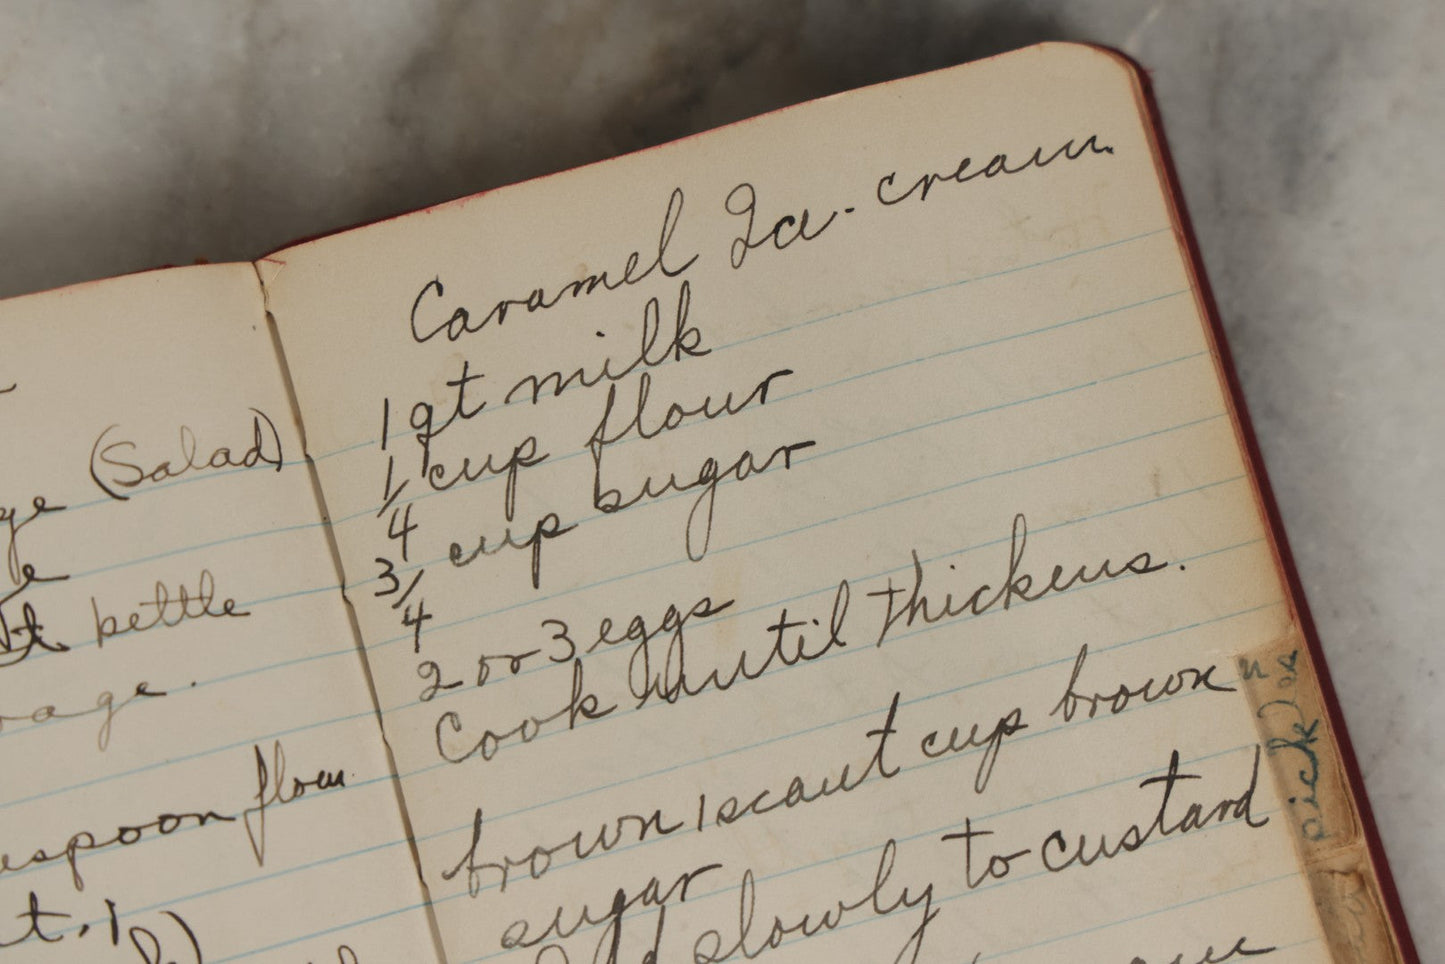 (Salad)
kettle
flour
Caramel Ice-cream.
1 qt milk
1/4 cup flour
3/4 cup sugar
2 or 3 eggs
Cook until thickens.
brown 1 scant cup brown
sugar
slowly to custard
pickles